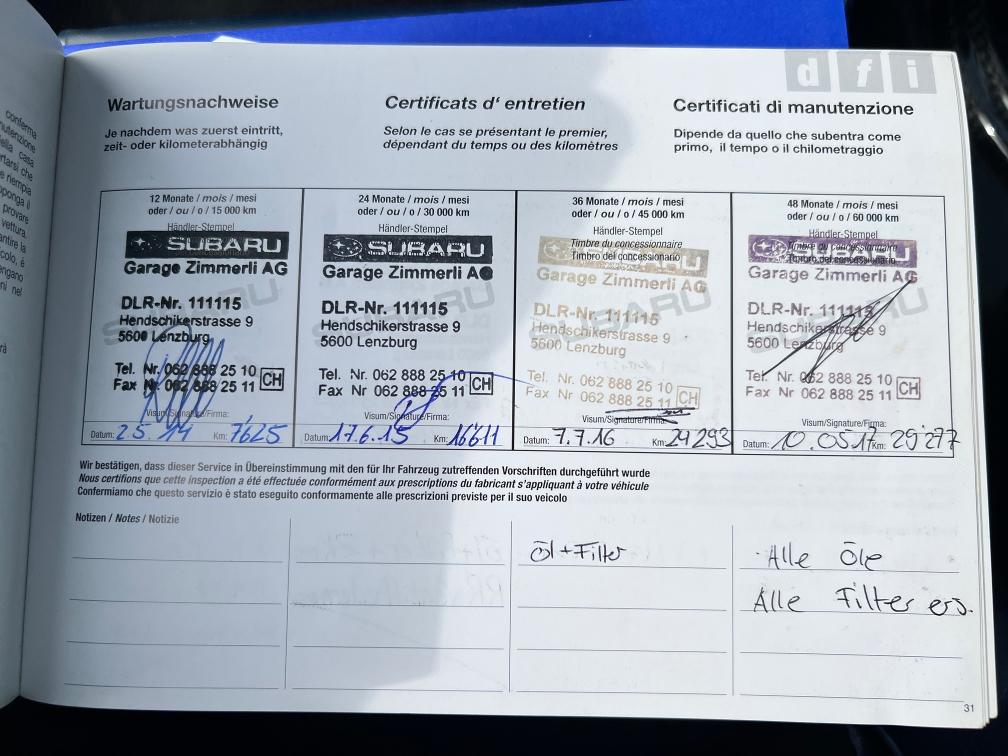 d f i
Wartungsnachweise
Je nachdem was zuerst eintritt,
zeit- oder kilometerabhängig
Certificats d' entretien
Selon le cas se présentant le premier,
dépendant du temps ou des kilomètres
Certificati di manutenzione
Dipende da quello che subentra come
primo, il tempo o il chilometraggio
12 Monate / mois / mesi
oder / ou / o / 15 000 km
Händler-Stempel
SUBARU
Garage Zimmerli AG
DLR-Nr. 111115
Hendschikerstrasse 9
5600 Lenzburg
Tel. Nr. 062 888 25 10
Fax Nr 062 888 25 11 CH
Visum/Signature/Firma:
Datum: 2 5 14 Km: 7625
24 Monate / mois / mesi
oder / ou / o / 30 000 km
Händler-Stempel
SUBARU
Garage Zimmerli AG
DLR-Nr. 111115
Hendschikerstrasse 9
5600 Lenzburg
Tel. Nr. 062 888 25 10
Fax Nr 062 888 25 11 CH
Visum/Signature/Firma:
Datum: 17.6.15 Km: 16611
36 Monate / mois / mesi
oder / ou / o / 45 000 km
Händler-Stempel
Timbre du concessionnaire
Timbro del concessionario
Garage Zimmerli AG
DLR-Nr. 111115
Hendschikerstrasse 9
5600 Lenzburg
Tel. Nr. 062 888 25 10
Fax Nr 062 888 25 11 CH
Visum/Signature/Firma:
Datum: 7.7.16 Km: 24293
48 Monate / mois / mesi
oder / ou / o / 60 000 km
Händler-Stempel
Timbre du concessionnaire
Timbro del concessionario
Garage Zimmerli AG
DLR-Nr. 111115
Hendschikerstrasse 9
5600 Lenzburg
Tel. Nr. 062 888 25 10
Fax Nr 062 888 25 11 CH
Visum/Signature/Firma:
Datum: 10.05.17 Km: 29277
Wir bestätigen, dass dieser Service in Übereinstimmung mit den für Ihr Fahrzeug zutreffenden Vorschriften durchgeführt wurde
Nous certifions que cette inspection a été effectuée conformément aux prescriptions du fabricant s'appliquant à votre véhicule
Confermiamo che questo servizio è stato eseguito conformamente alle prescrizioni previste per il suo veicolo
Notizen / Notes / Notizie
Öl + Filter
Alle Öle
Alle Filter ers.
31